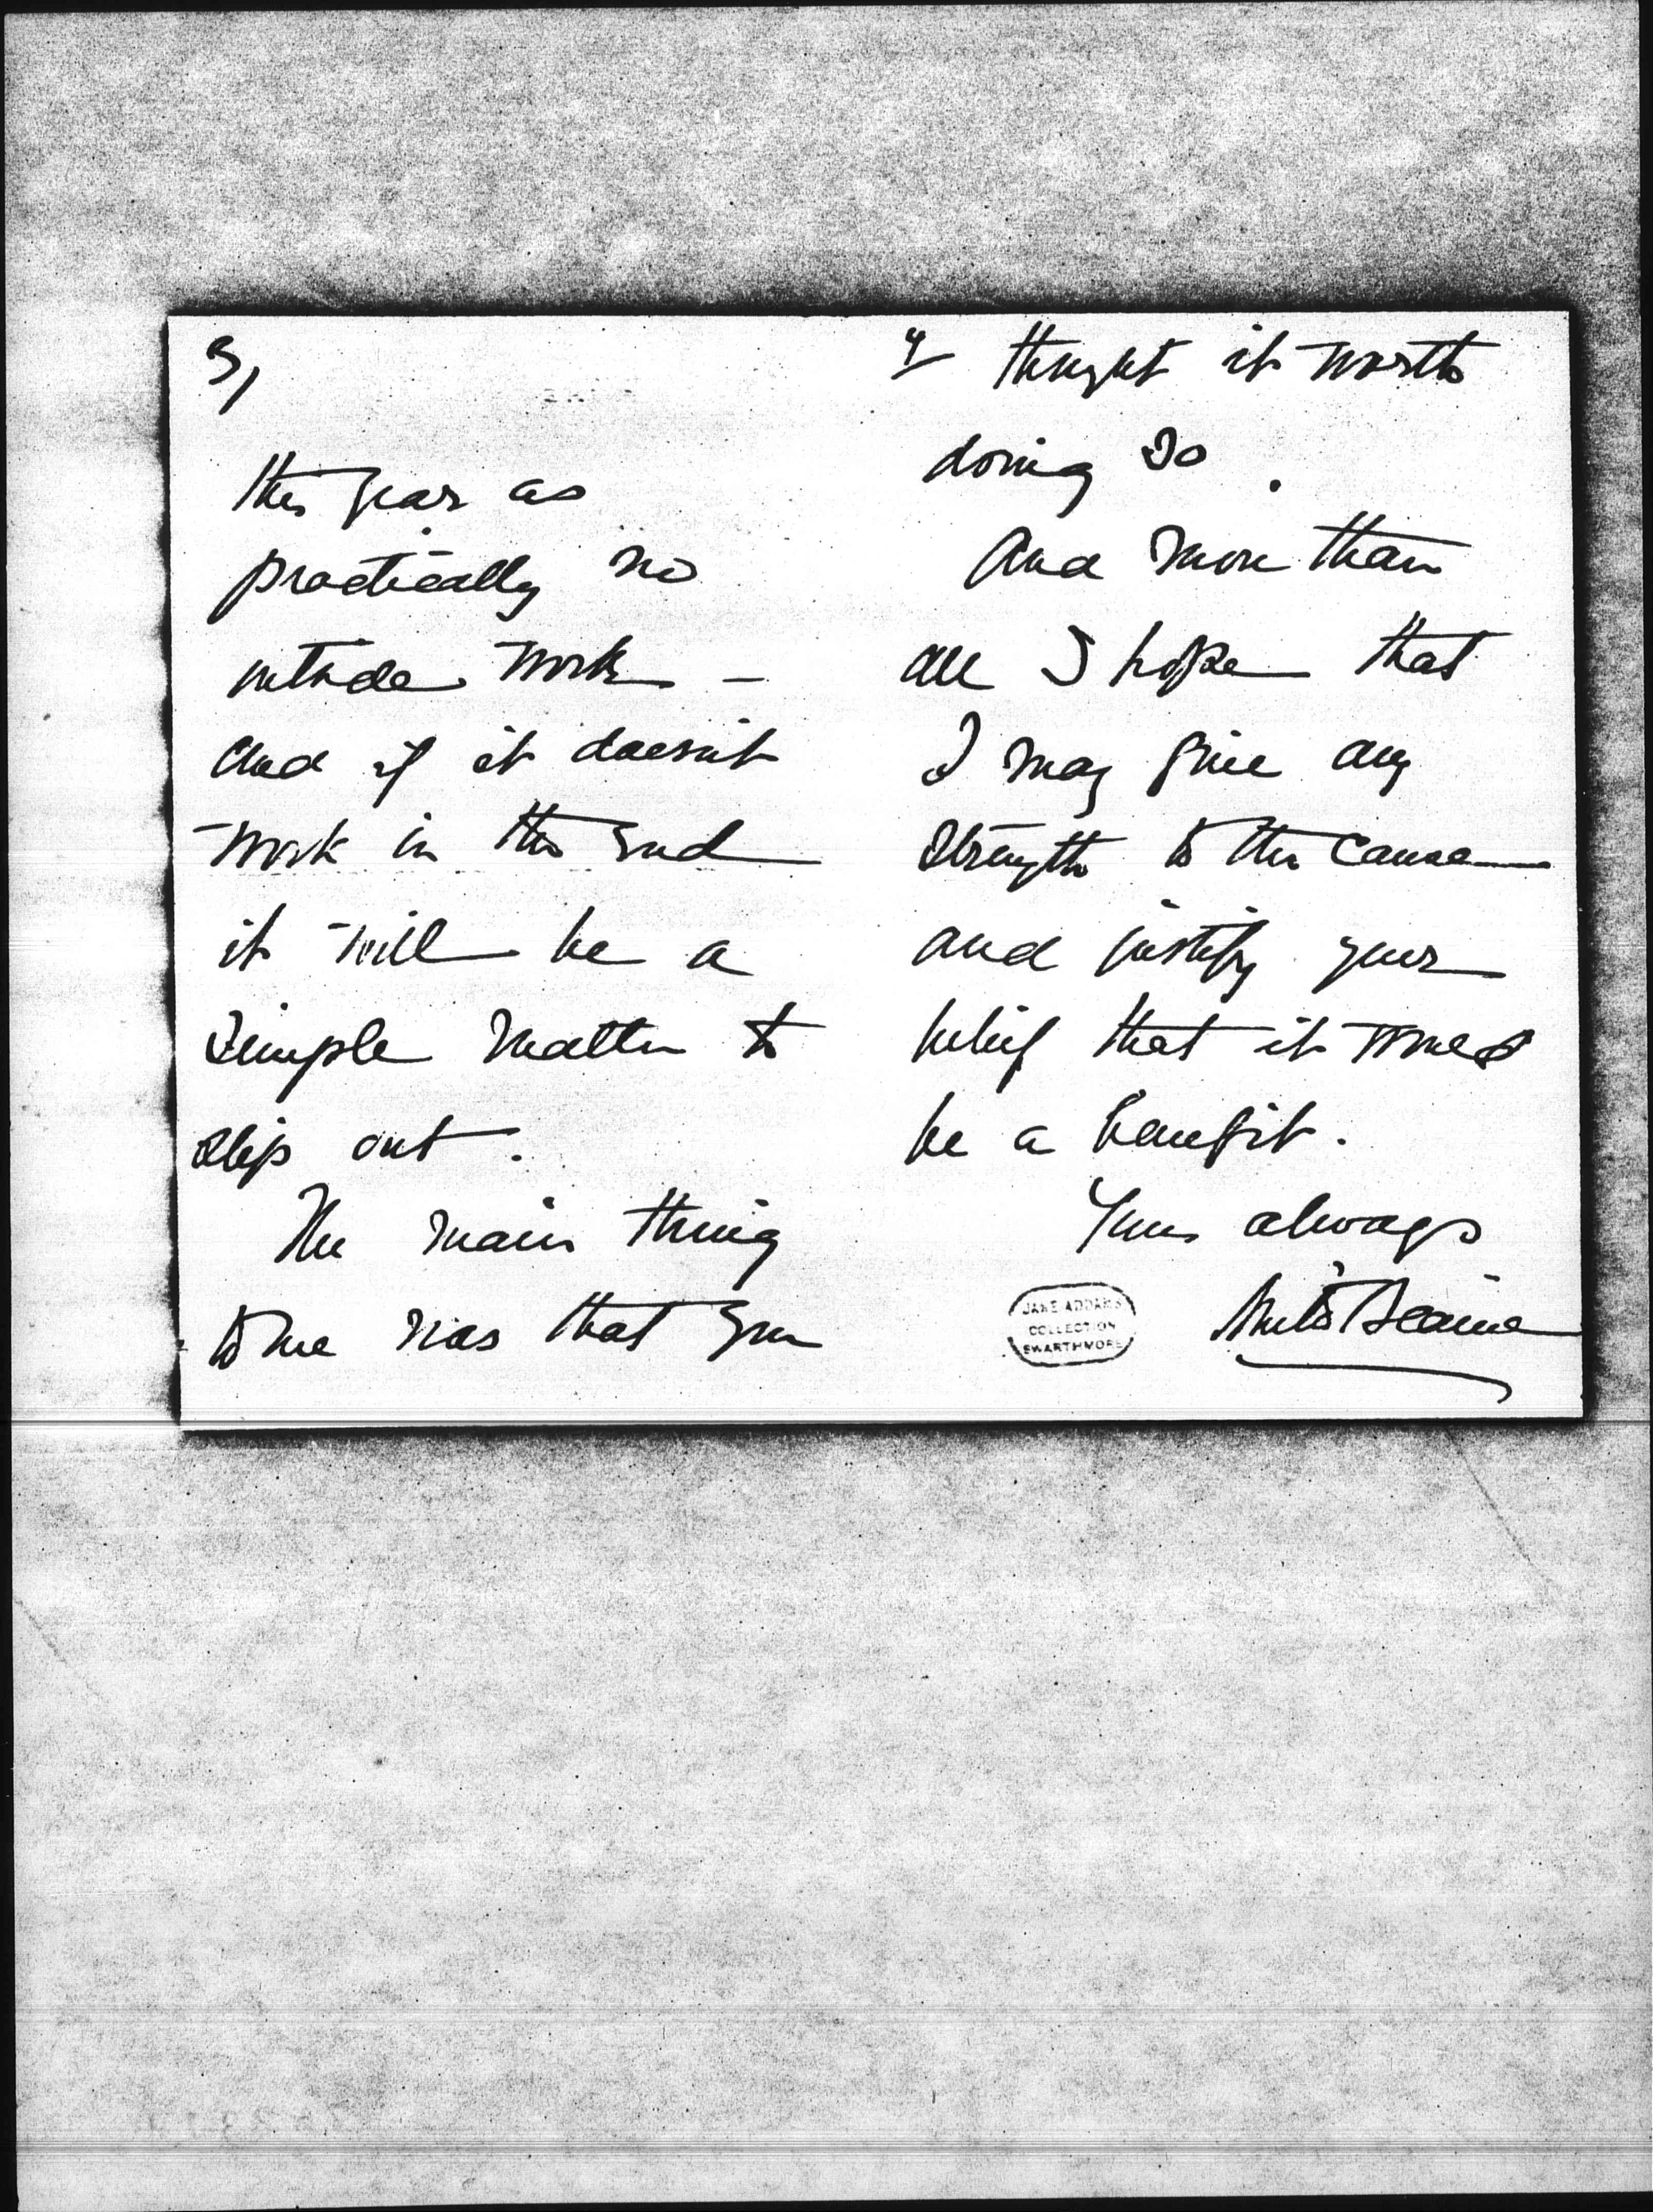 3/
this year as
practically no
outside work -
And if it doesn't
work in the end
it will be a
simple matter to
slip out.
The main thing
to me was that you
4
thought it worth
doing so.
And more than
all I hope that
I may give any
strength to the cause
and justify your
belief that it would
be a benefit.
Yours always
JANE ADDAMS
COLLECTION
SWARTHMORE